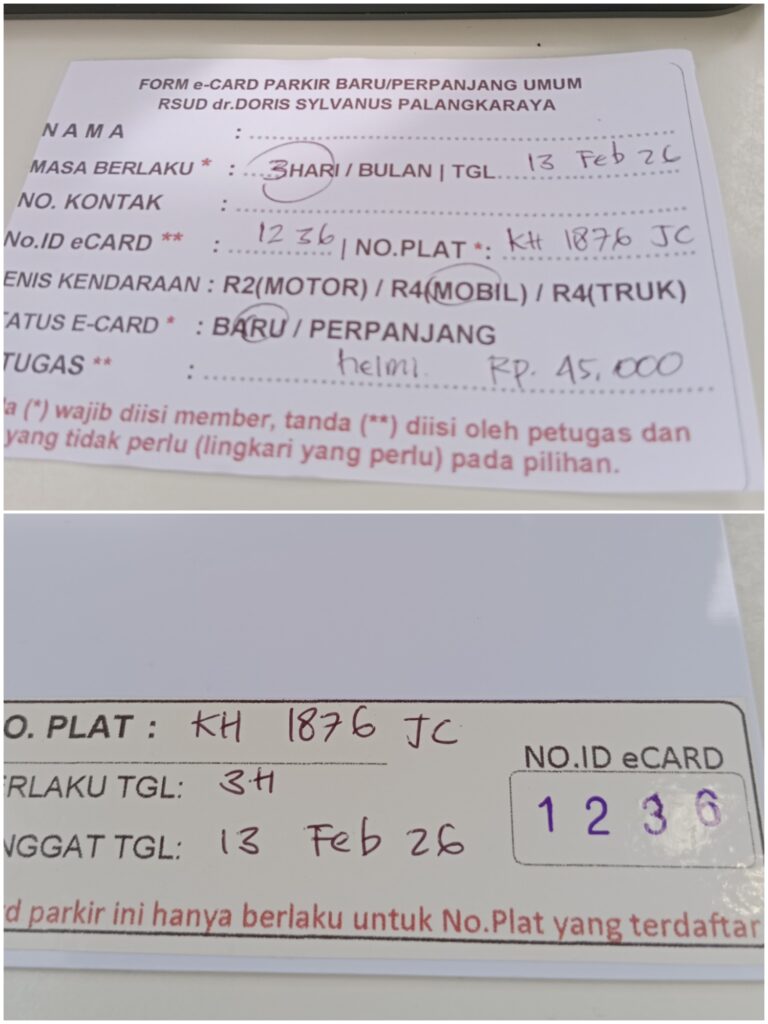 FORM e-CARD PARKIR BARU/PERPANJANG UMUM
RSUD dr.DORIS SYLVANUS PALANGKARAYA
N A M A :
MASA BERLAKU * : 3 HARI / BULAN | TGL. 13 Feb 26
NO. KONTAK :
No.ID eCARD ** : 1236 | NO.PLAT *: KH 1876 JC
ENIS KENDARAAN : R2(MOTOR) / R4(MOBIL) / R4(TRUK)
ATUS E-CARD * : BARU / PERPANJANG
TUGAS ** : helmi. Rp. 45,000
a (*) wajib diisi member, tanda (**) diisi oleh petugas dan
yang tidak perlu (lingkari yang perlu) pada pilihan.
O. PLAT : KH 1876 JC
NO.ID eCARD
RLAKU TGL: 3H
1 2 3 6
NGGAT TGL: 13 Feb 26
rd parkir ini hanya berlaku untuk No.Plat yang terdaftar